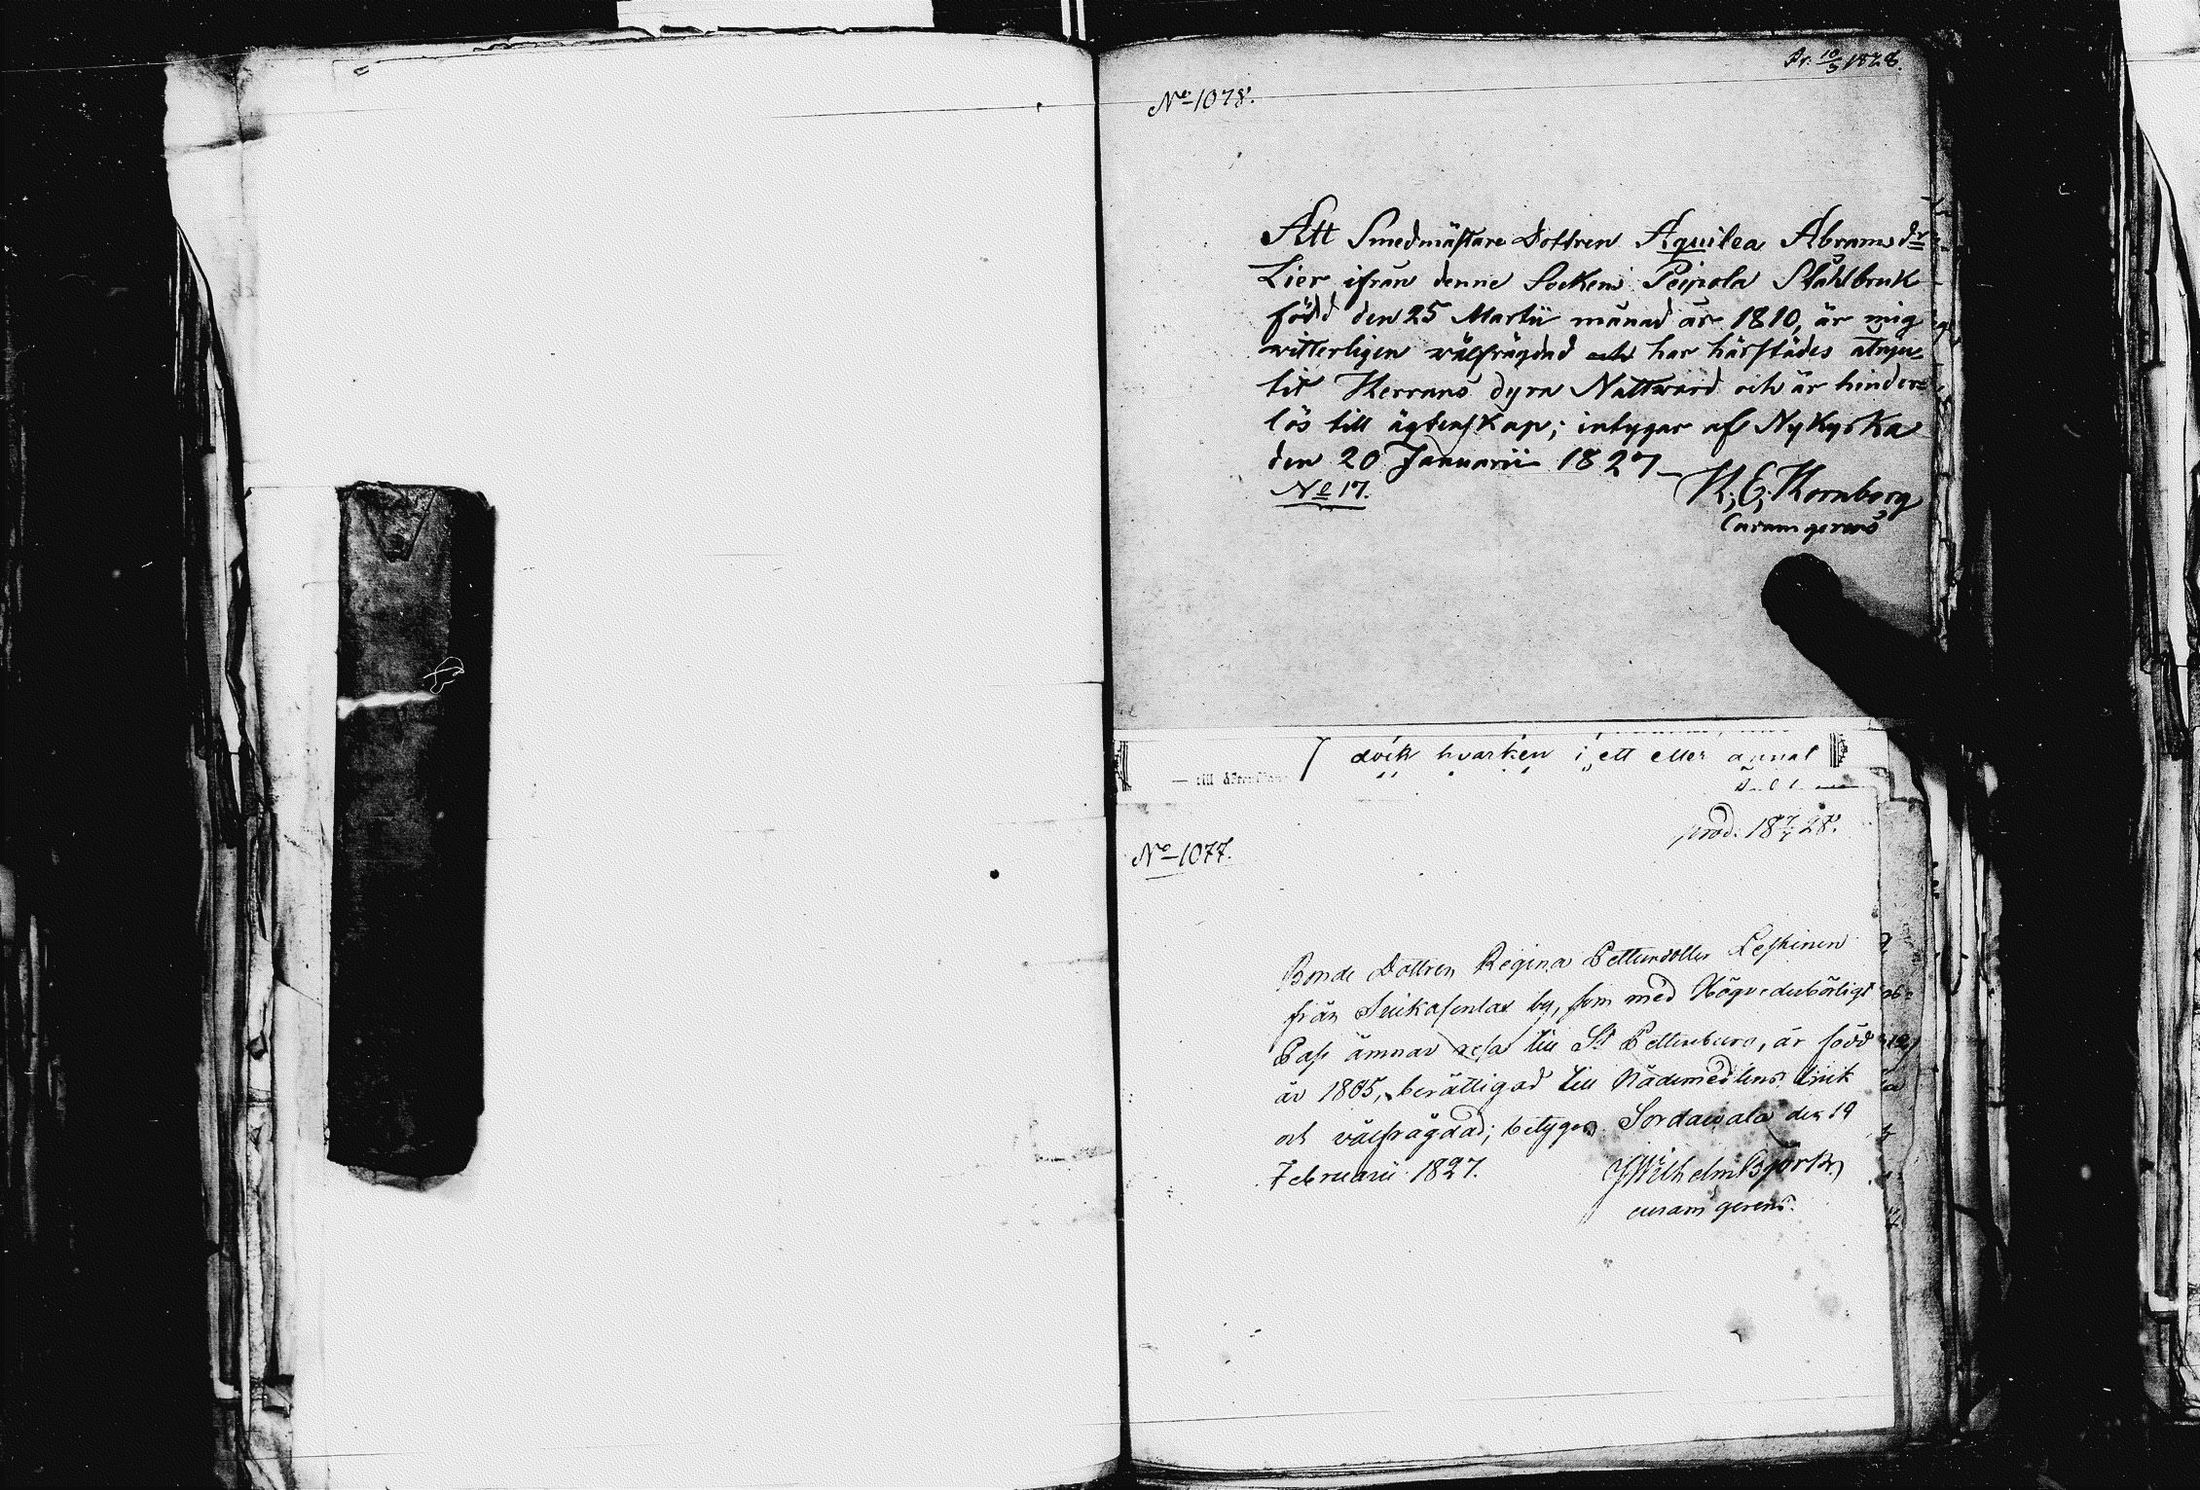 Pr. 10/3 1828.
No 1078.
Att Smedmästare Dottren Aquilea Abramsdr
Lier ifrån denne Sockens Peipola Stålbruk
född den 25 Martii månad år 1810, är mig
witterligen wälfrägdad och har härstädes åtnju-
tit Herrans dyra Nattward och är hinder-
lös till ägtenskap; intygar af Nykyrka
den 20 Januarii 1827
No 17.
K. E. Hornborg
Curam gerens
— till
dock hvarken i ett eller annat
prod. 18 7/4 28.
No 1077.
Bonde Dottren Regina Pettersdotter Leskinen
från by, som med Högvederbörligt
Pass ämnar resa till St Pettersburg, är född
år 1805, berättigad till Nådemedlens bruk
och välfrägdad; betygas. Sordawala den 19
Februarii 1827.
J Wilhelm Bjork
curam gerens.